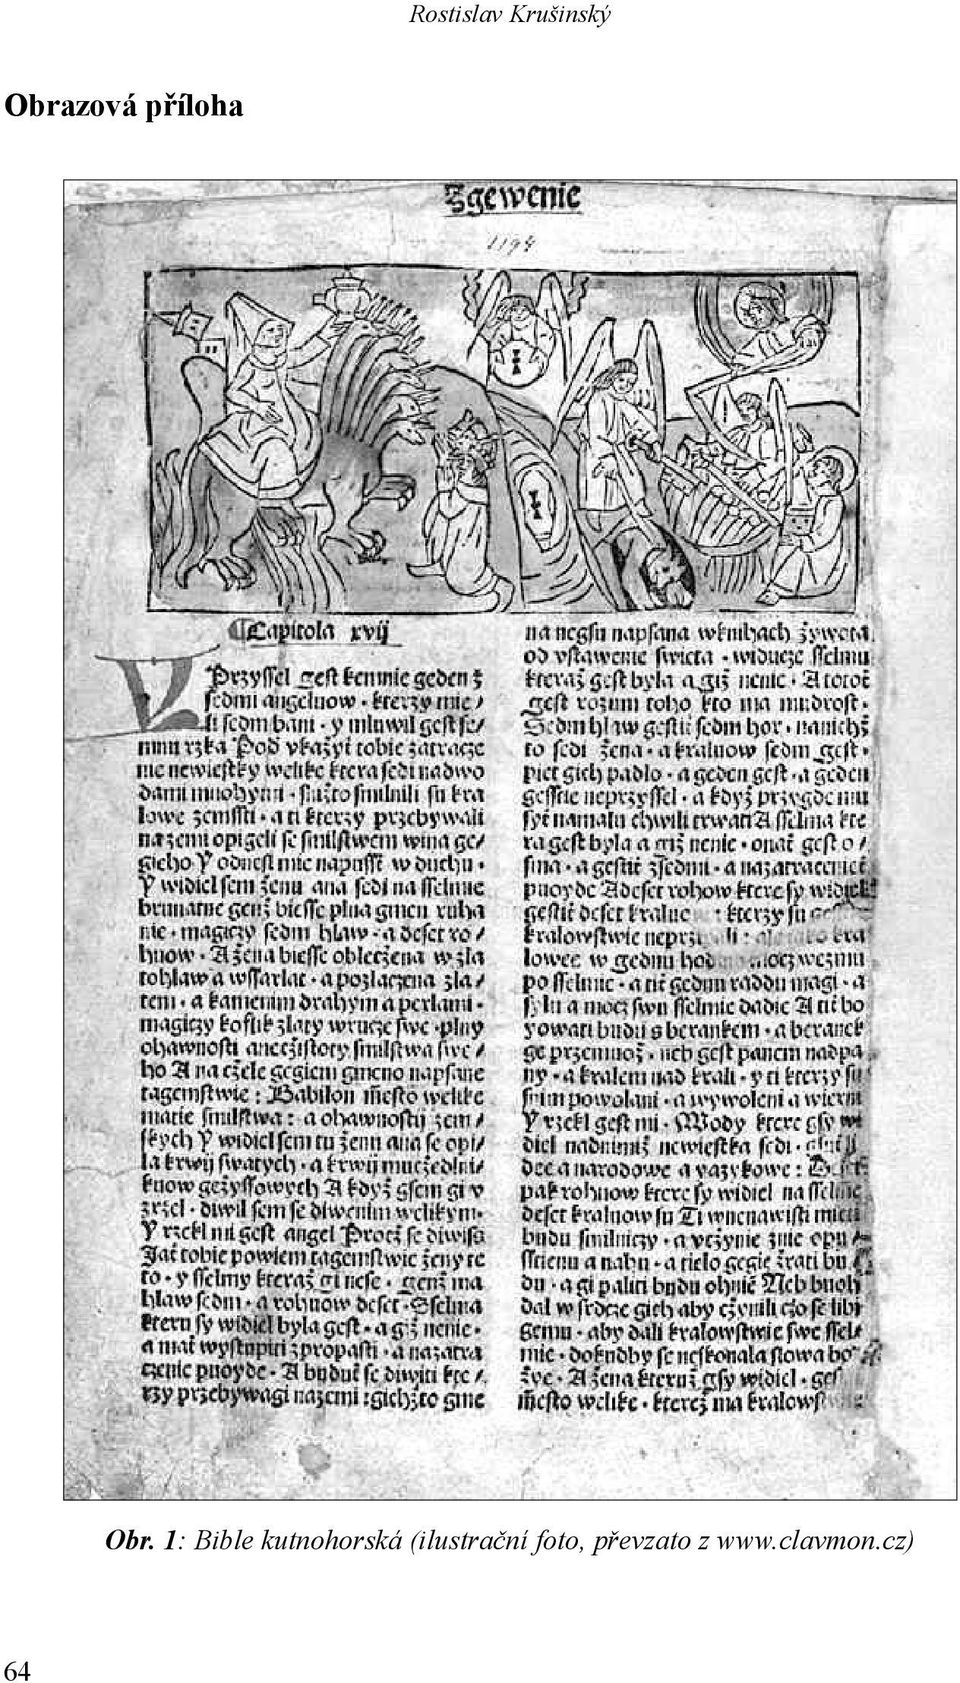 Rostislav Krušinský
Obrazová příloha
Zgewenie
1194
Capitola xvij
Przyssel gest kemnie geden z
sedmi angeluow · kterzy mie /
li sedm bani · y mluwil gest se /
mnu rzka Pod vkazyt tobie zatracze
nie newiestky welike ktera sedi nadwo
dami mnohymi · snizto smilnili su kra
lowe zemssti · a ti kterzy przebywali
nazemi opigeli se smilstwem wina ge /
gieho Y odnesl mie napusst w duchu ·
Y widiel sem ženu ana sedi na sselmie
brunatne genž biesse plna gmen ruha
nie · magiczy sedm hlaw · a deset ro /
huow · A žena biesse obleczena w zla
tohlaw a wssarlat · a pozlaczena zla /
tem · a kamenim drahym a perlami ·
magiczy koflik zlaty wrucze swe · plny
ohawnosti aneczistoty smilstwa swe /
ho A na czele gegiem gmeno napsane
tagemstwie : Babilon miesto welike
matie smilstwa : a ohawnostij zem /
skych Y widiel sem tu ženu ana se opi /
la krwij swatych · a krwij muczedlni /
kuow gežyssowych A když gsem gi v
zrzel · diwil sem se diwenim welikym ·
Y rzekl mi gest angel Procž se diwiss
Jat tobie powiem tagemstwie ženy te
to · y sselmy kteraž gi nese · genž ma
hlaw sedm · a rohuow deset · Sselma
kteru sy widiel byla gest · a giž nenie ·
a mat wystupiti zpropasti · a nazatra
czenie puoyde · A budut se diwiti kte /
rzy przebywagi nazemi : gichžto gme
na negsu napsana wknihach žywota
od vstawenie swieta · widucze sselmu
kteraž gest byla a giž nenie · A totot
gest rozum toho kto ma mudrost ·
Sedm hlaw gestit sedm hor · nanichž
to sedi žena · a kraluow sedm gest ·
piet gich padlo · a geden gest · a geden
gesstie neprzyssel · a když przygde mu
syt namalu chwili trwati A sselma kte
ra gest byla a giž nenie · onat gest o /
sma · a gestit zsedmi · a nazatracenet
puoyde A deset rohow ktere sy widiel
gestit deset kraluo : kterzy su
kralowstwie neprzigali : ale iako kra
lowee w gednu hodinu mocz wezmu
po sselmie · a tit gednu raddu magi · a
sylu a mocz swu sselmie dadie A tit bo
yowati budu s berankem · a beranek
ge przemuož · neb gest panem nadpa
ny · a kralem nad krali · y ti kterzy su
snim powolani · a wywoleni a wierni
Y rzekl gest mi · Wody ktere gsy wi
diel nadnimiž newiestka sedi ·
dee a narodowe a yazykowe : Deset
pak rohuow ktere sy widiel na sselmie
deset kraluow su Ti wnenawisti mieti
budu smilniczy · a veziynie gnie opu /
sstienu a nahu · a tielo gegie žrati bu
du · a gi paliti budu ohniem Neb buoh
dal w srdcze gich aby czynili czo se libi
gemu · aby dali kralowstwie swe ssel /
mie · dokudby se neskonala slowa bo
žye · A žena kteruž gsy widiel · gest
miesto welike · kterež ma kralowst
Obr. 1: Bible kutnohorská (ilustrační foto, převzato z www.clavmon.cz)
64